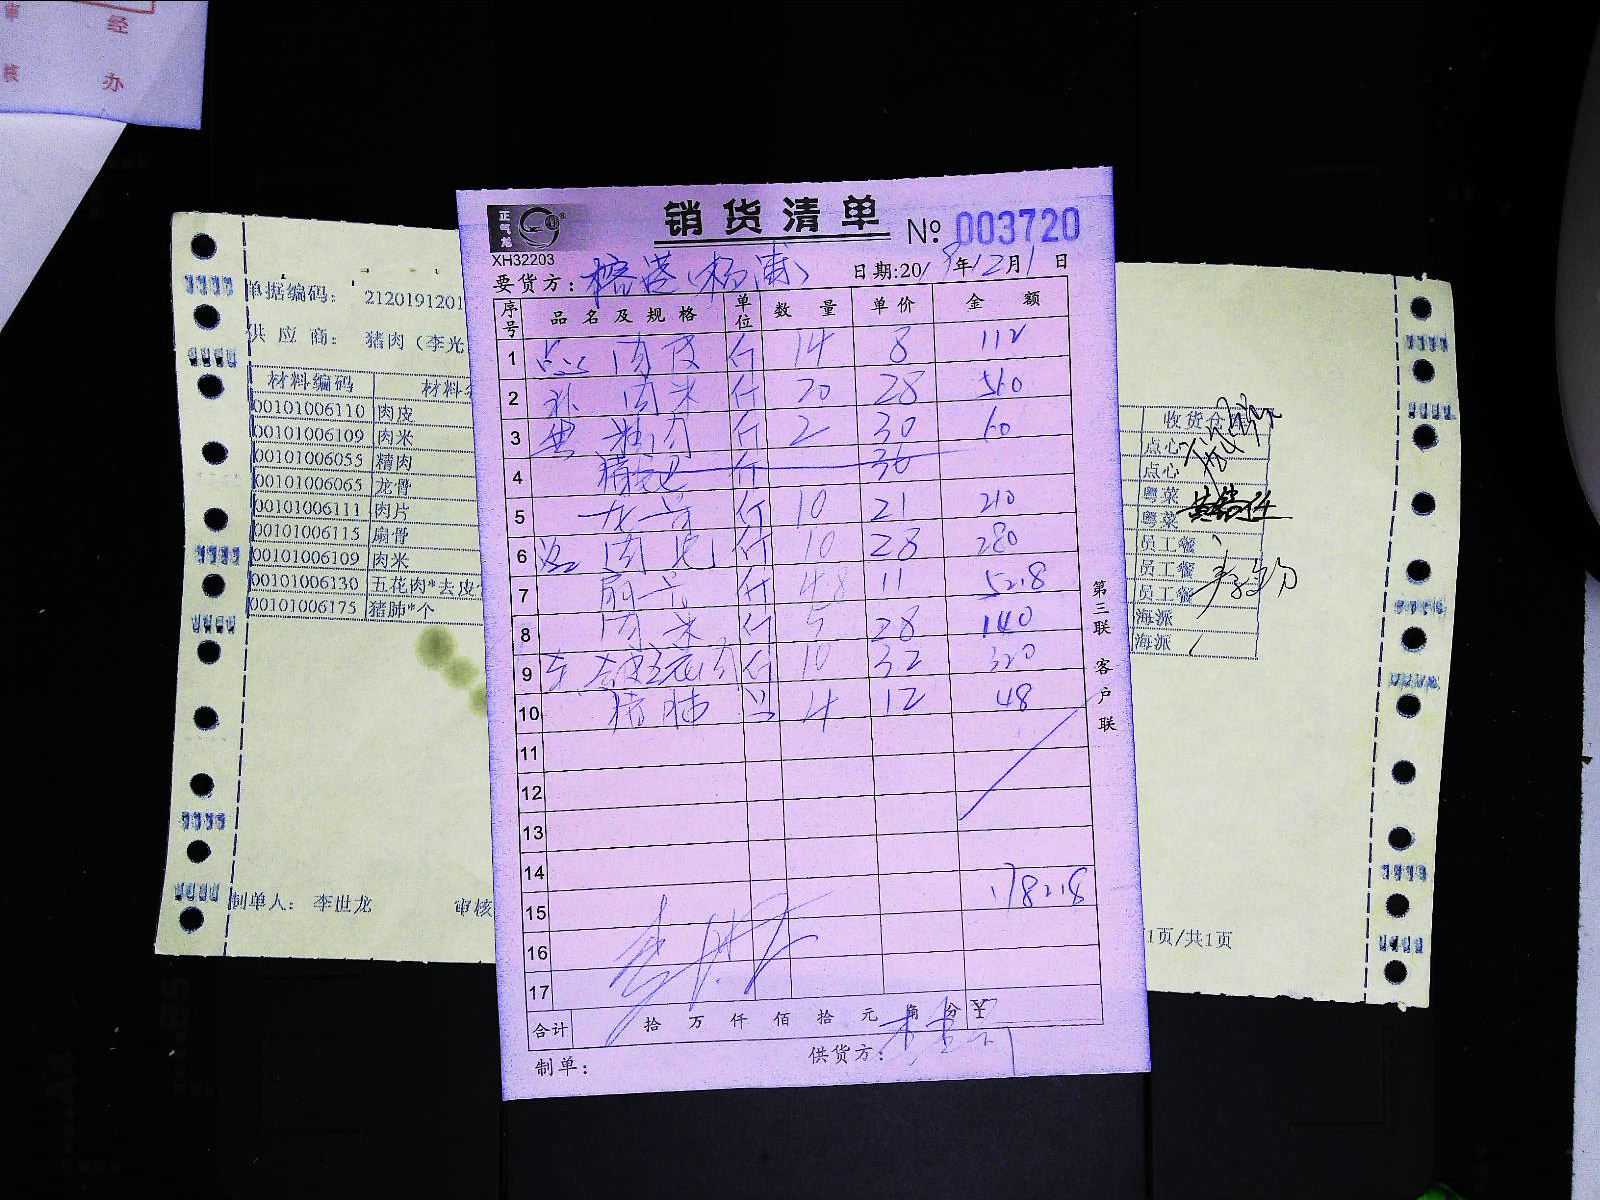 经
办
审
核
正气龙
销货清单
№ 003720
XH32203
要货方:
日期:2019年12月1日
序号 品名及规格 单位 数量 单价 金额
1 点心 肉皮 斤 14 8 112
2 肉米 斤 20 28 560
3 粤 精肉 斤 2 30 60
4 斤 36
5 龙骨 斤 10 21 210
6 肉片 斤 10 28 280
7 扇骨 斤 4.8 11 52.8
8 肉米 斤 5 28 140
9 去皮五花肉 斤 10 32 320
10 猪肺 只 4 12 48
11
12
13
14
15 1782.8
16
17
合计 拾 万 仟 佰 拾 元 角 分 ¥
制单:
供货方:
第三联 客户联
单据编码: 2120191201
供应商: 猪肉(李光
材料编码 材料
00101006110 肉皮
00101006109 肉米
00101006055 精肉
00101006065 龙骨
00101006111 肉片
00101006115 扇骨
00101006109 肉米
00101006130 五花肉*去皮
00101006175 猪肺*个
制单人: 李世龙
审核
收货仓库
点心
点心
粤菜
粤菜
员工餐
员工餐
员工餐
海派
海派
1页/共1页